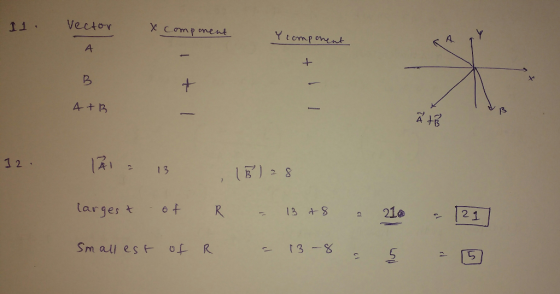 11. Vector X component Y component
A - +
B + -
A+B - -
Y
A
x
B
A⃗+B⃗
12. |A⃗| = 13 , |B⃗| = 8
largest of R = 13 + 8 = 21 = 21
Smallest of R = 13 - 8 = 5 = 5